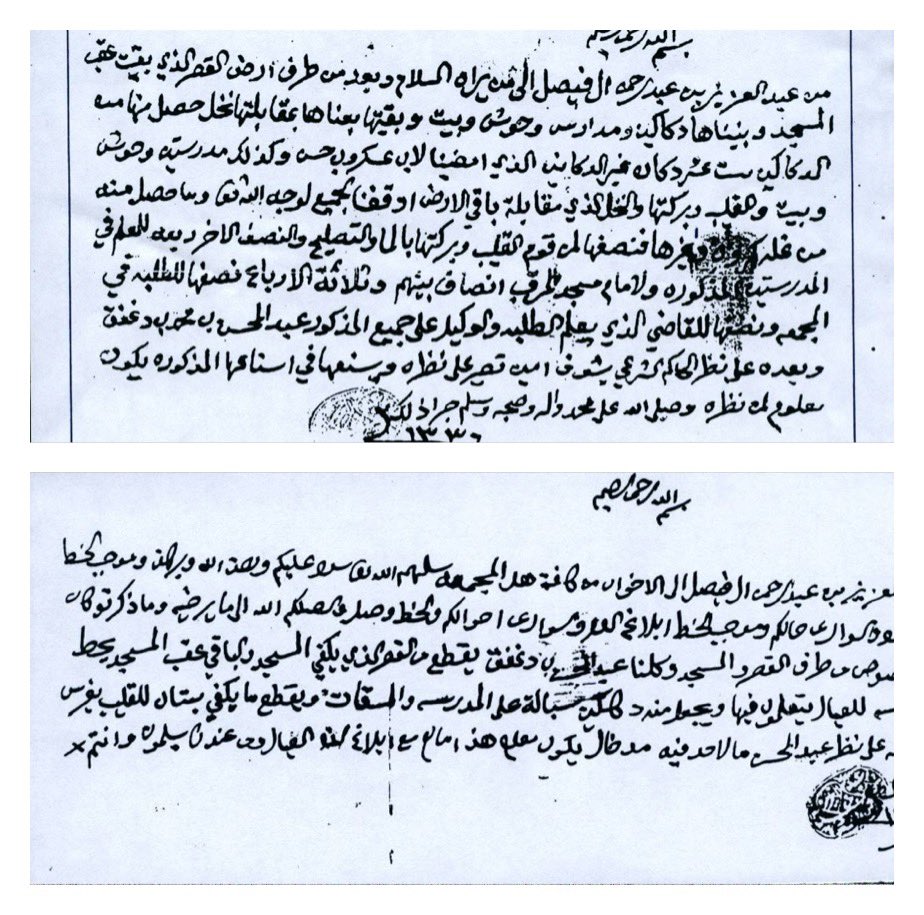 بسم الله الرحمن الرحيم
من عبد العزيز بن عبد الرحمن ال فيصل الى من يراه السلام وبعد من طرف ارض القصر الذي بقيت عقب
المسجد وبنيناها دكاكين ومدارس وحوش وبيت وبقيتها بعناها بمقابلتها نخل حصل منها من
الدكاكين ست عشر دكان غير الدكانين الذي امضينا لابن عسكر وبن حسن وكذلك مدرستين وحوش
وبيت والقليب وبركتها والنخل الذي مقابلة باقي الارض اوقفنا الجميع لوجه الله تعالى وما حصل منه
من غله وغيرها فنصفها لمن قوم القليب وبركتها بالماء والتصليح والنصف الاخر ربعه للمعلم في
المدرستين المذكوره ولامام مسجد المرقب انصاف بينهم وثلاثة الارباع نصفها للطلبه في
المجمعه ونصفها للقاضي الذي يعلم الطلبه والوكيل على جميع المذكور عبد المحسن بن محمد بن دغفق
وبعده على نظر الحاكم الشرعي يشوف امين تصير على نظره ويسنعها في اسناعها المذكوره يكون
معلوم لمن نظره وصلى الله على محمد واله وصحبه وسلم
١٣٣٠
بسم الله الرحمن الرحيم
عزيز بن عبد الرحمن ال فيصل الى الاخوان من كافة هل المجمعه سلمهم الله تعالى سلام عليكم ورحمة الله وبركاته وموجب الخط
حالكم وموجب الخط ابلاغ السلام والسؤال عن احوالكم والخط وصل وصلكم الله الى ما يرضيه وما ذكرتو كان
من طرف القصر والمسجد وكلنا عبد المحسن بن دغفق يقطع من القصر الذي يكفي المسجد والباقي عقب المسجد يحط
للعيال يتعلمون فيها ويجعل منه دكاكين سبالة على المدرسه والمسقات ويقطع ما يكفي بستان للقليب يغرس
على نظر عبد المحسن ما لاحد فيه مدخال يكون معلوم هذا ما لزم مع ابلاغ السلام العيال ومن عندنا يسلمون وانتم